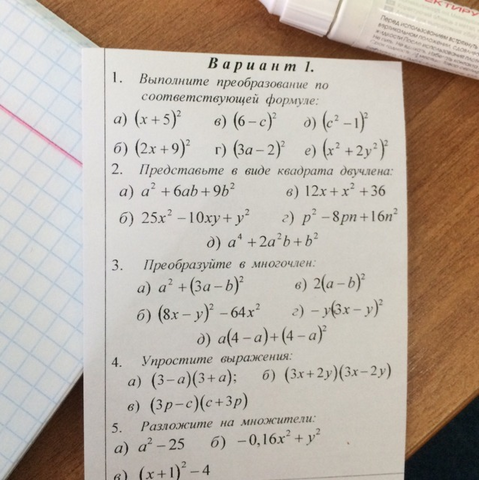 Вариант 1.
1. Выполните преобразование по
соответствующей формуле:
а) (x + 5)² в) (6 − c)² д) (c² − 1)²
б) (2x + 9)² г) (3a − 2)² е) (x² + 2y²)²
2. Представьте в виде квадрата двучлена:
а) a² + 6ab + 9b² в) 12x + x² + 36
б) 25x² − 10xy + y² г) p² − 8pn + 16n²
д) a⁴ + 2a²b + b²
3. Преобразуйте в многочлен:
а) a² + (3a − b)² в) 2(a − b)²
б) (8x − y)² − 64x² г) − y(3x − y)²
д) a(4 − a) + (4 − a)²
4. Упростите выражения:
а) (3 − a)(3 + a); б) (3x + 2y)(3x − 2y)
в) (3p − c)(c + 3p)
5. Разложите на множители:
а) a² − 25 б) −0,16x² + y²
в) (x + 1)² − 4
Перед использованием